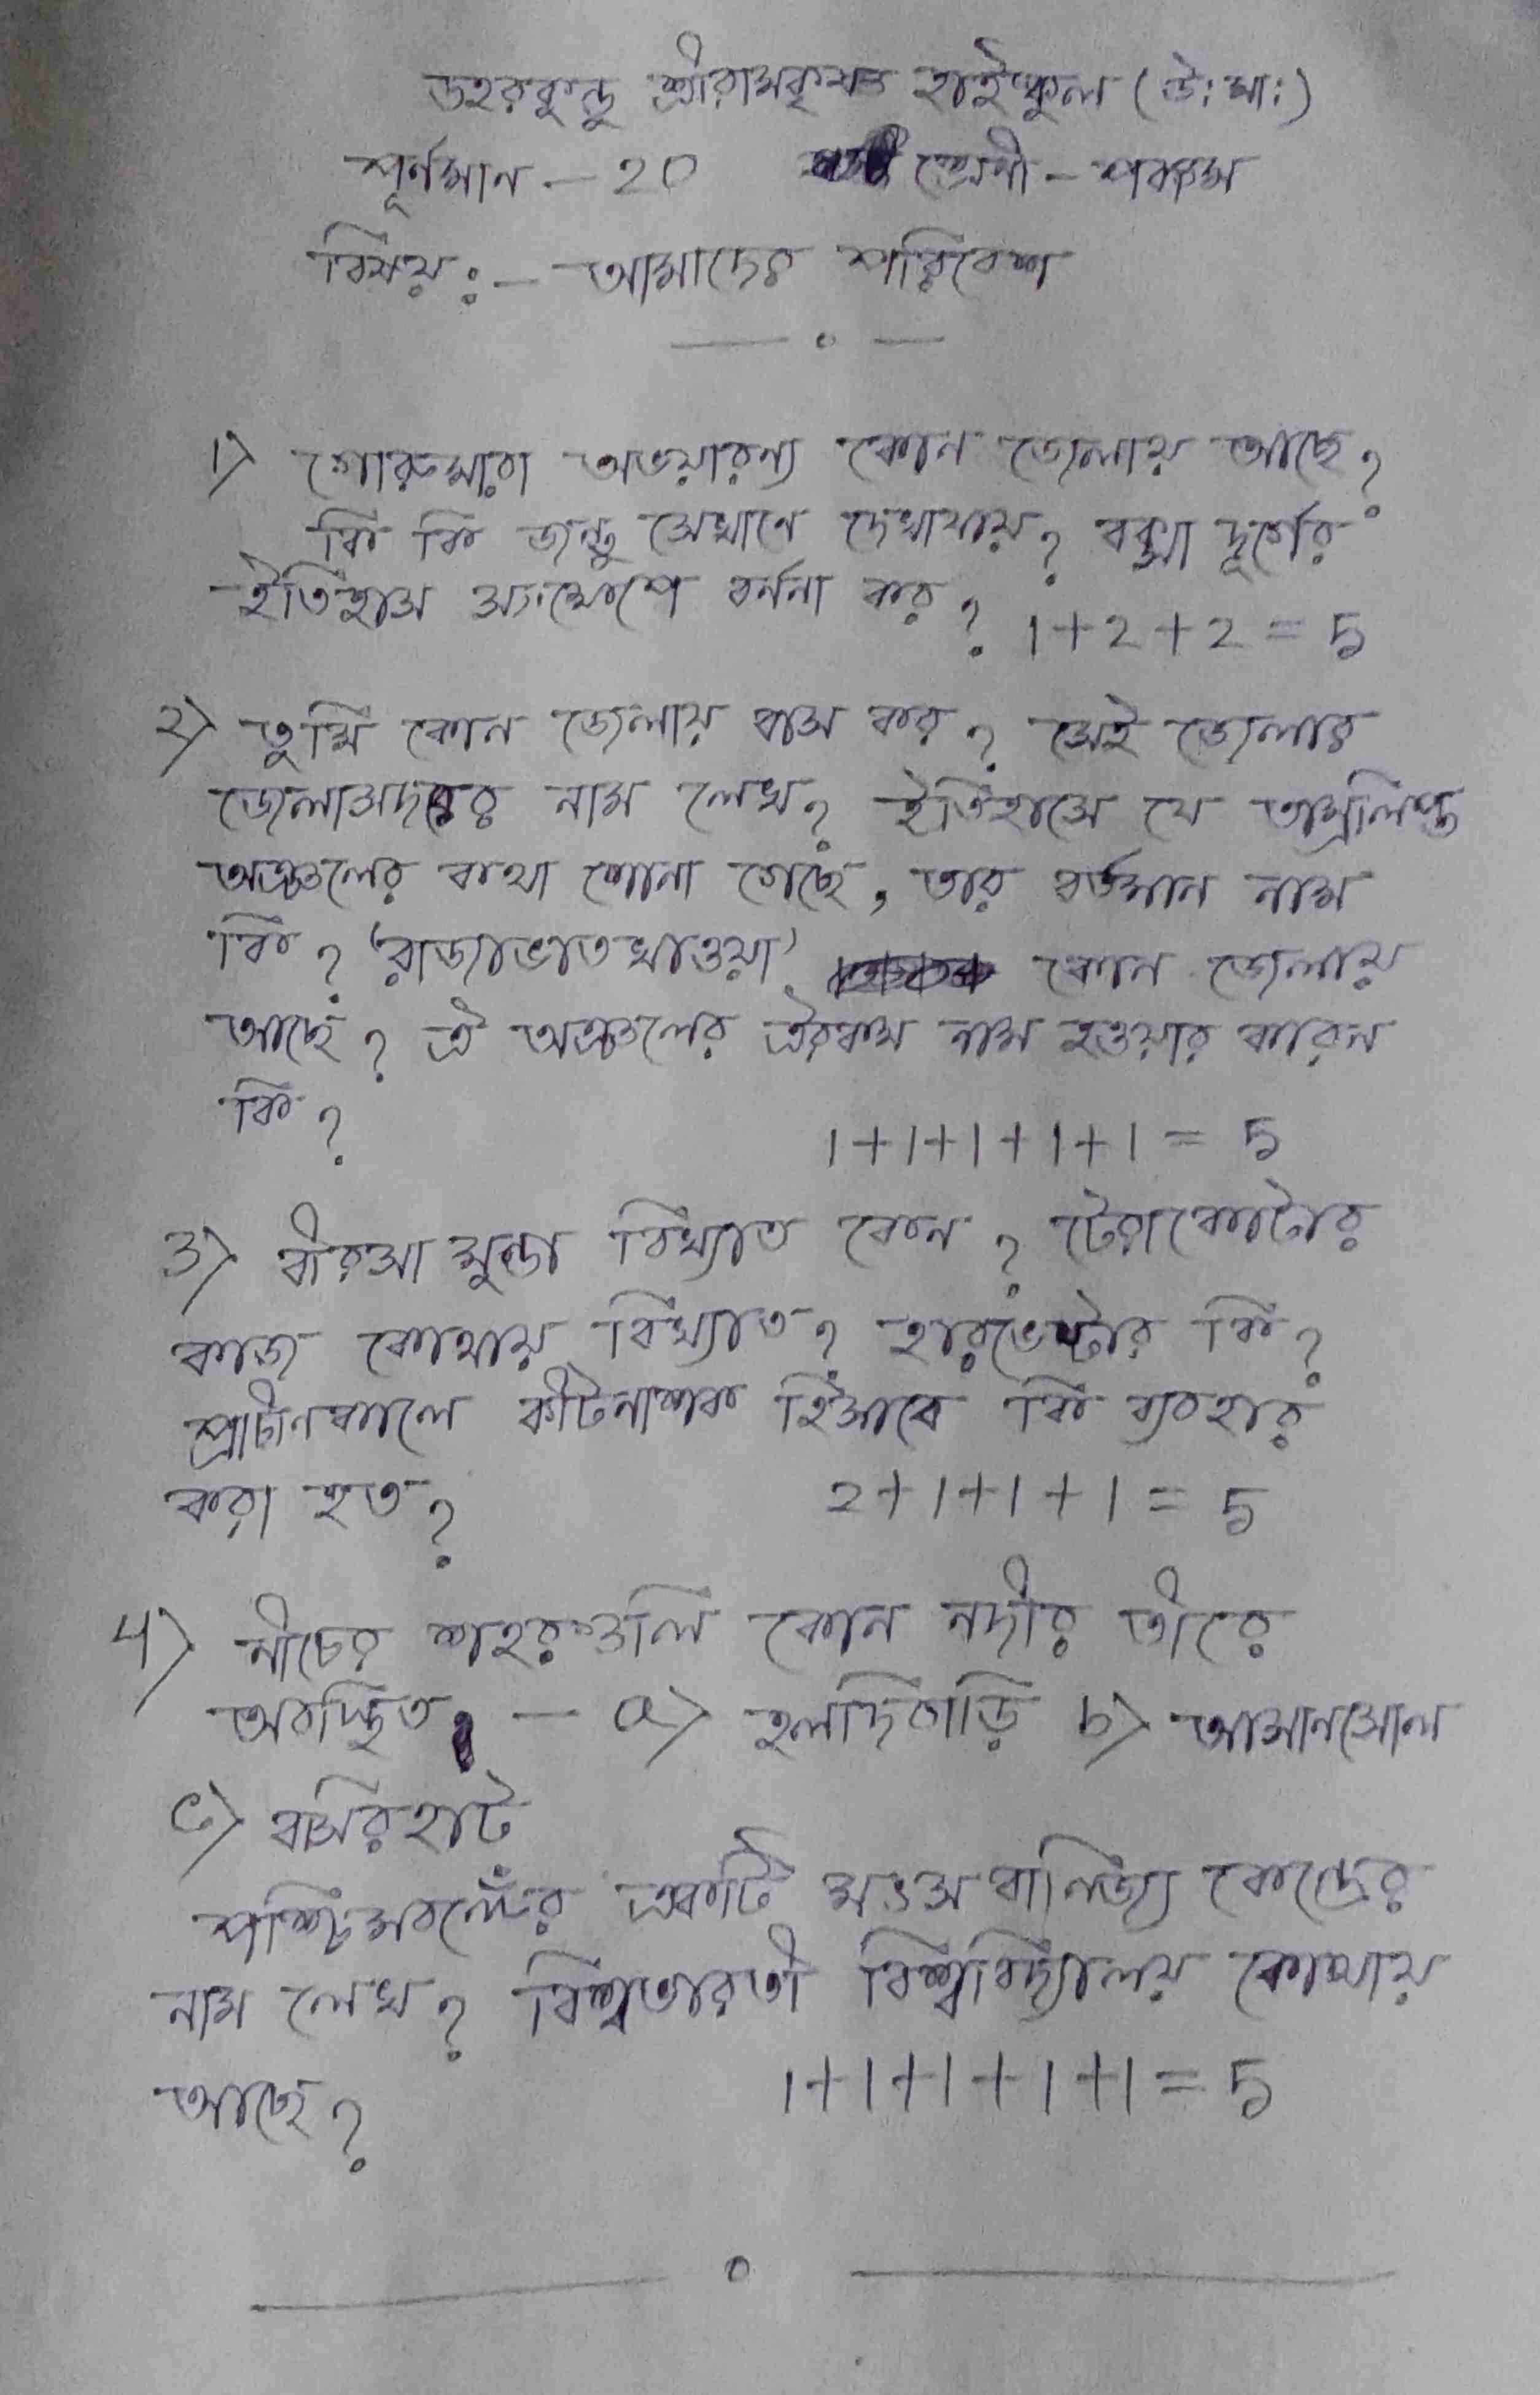 ডহরকুন্ডু শ্রীরামকৃষ্ণ হাইস্কুল (উ: মা:)
পূর্নমান - 20 শ্রেনী - পঞ্চম
বিষয় :- আমাদের পরিবেশ
1) গোরুমারা অভয়ারন্য কোন জেলায় আছে?
কি কি জন্তু সেখানে দেখাযায়? বক্সা দূর্গের
ইতিহাস সংক্ষেপে বর্ননা কর? 1+2+2 = 5
2) তুমি কোন জেলায় বাস কর? সেই জেলার
জেলাসদরের নাম লেখ? ইতিহাসে যে তাম্রলিপ্ত
অঞ্চলের কথা শোনা গেছে, তার বর্তমান নাম
কি? 'রাজাভাতখাওয়া' কোন জেলায়
আছে? ঐ অঞ্চলের ঐরকম নাম হওয়ার কারন
কি? 1+1+1+1+1 = 5
3) বীরসা মুন্ডা বিখ্যাত কেন? টেরাকোটার
কাজ কোথায় বিখ্যাত? হারভেস্টার কি?
প্রাচীনকালে কীটনাশক হিসাবে কি ব্যবহার
করা হত? 2+1+1+1 = 5
4) নীচের শহরগুলি কোন নদীর তীরে
অবস্থিত - a) হলদিবাড়ি b) আসানসোল
c) বসিরহাট
পশ্চিমবঙ্গের একটি মৎস বানিজ্য কেন্দ্রের
নাম লেখ? বিশ্বভারতী বিশ্ববিদ্যালয় কোথায়
আছে? 1+1+1+1+1 = 5